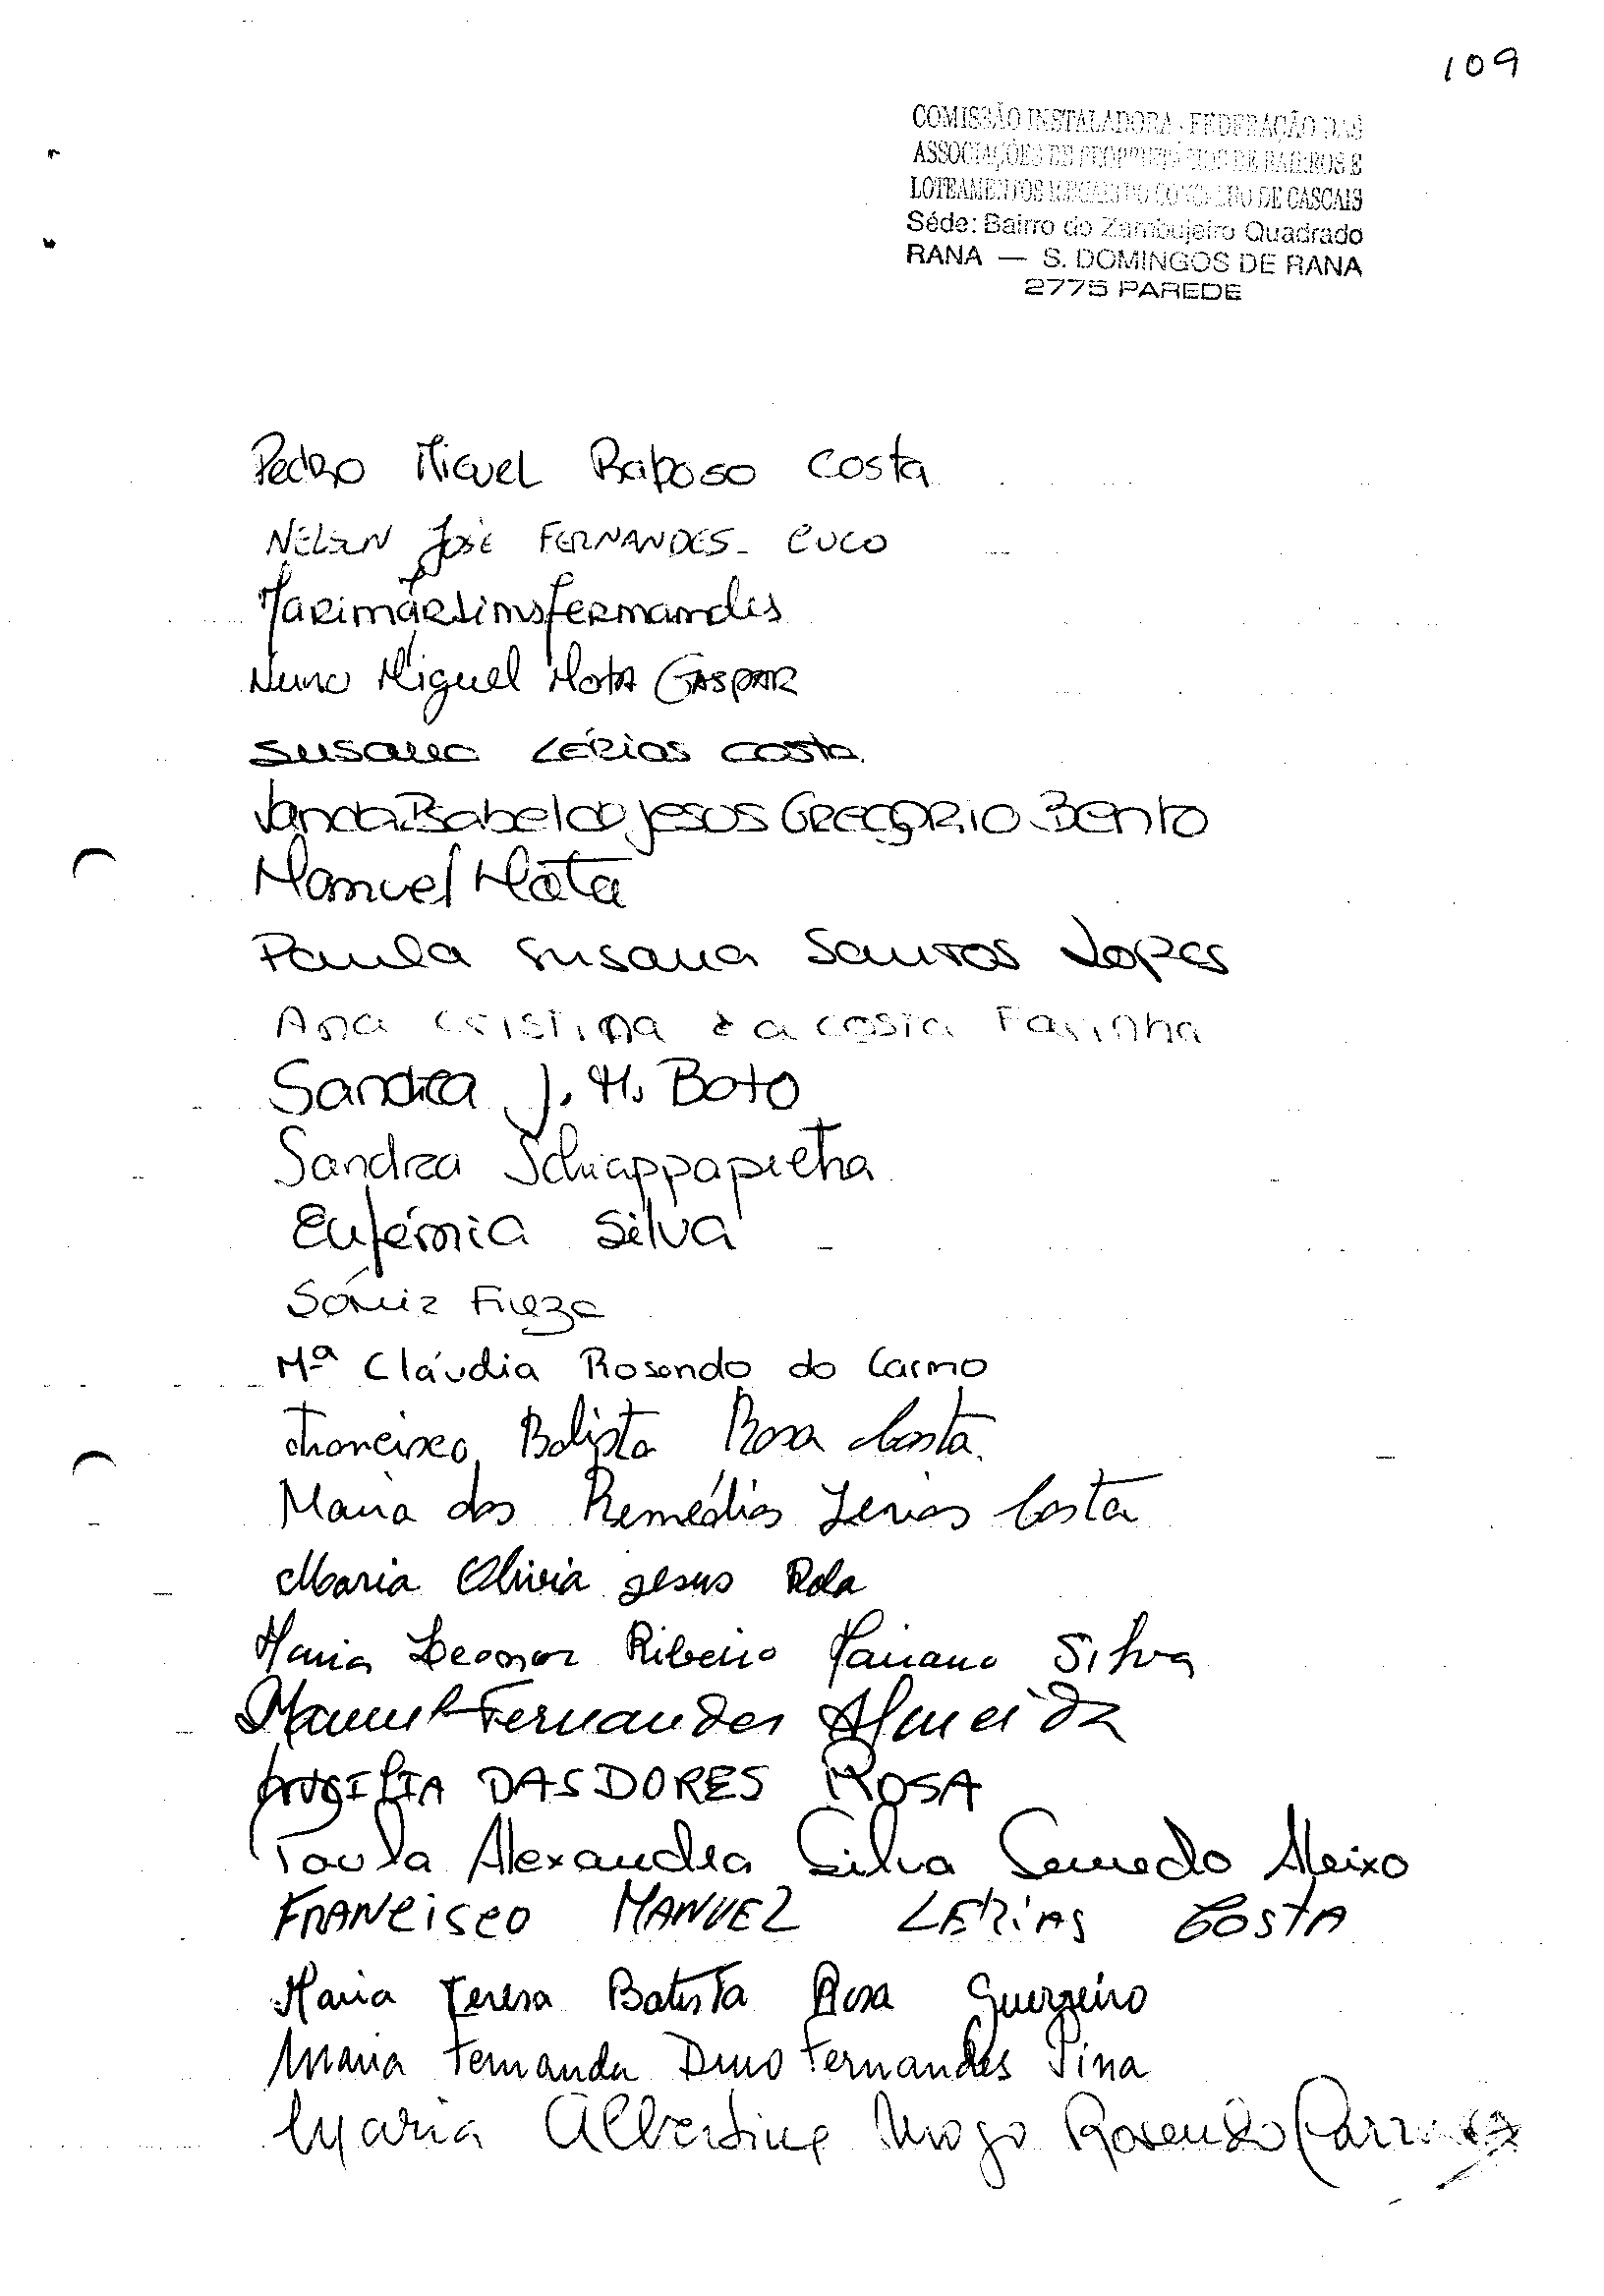 109
COMISSÃO INSTALADORA - FEDERAÇÃO DAS
ASSOCIAÇÕES DE PROPRIETÁRIOS DE BAIRROS E
LOTEAMENTOS ILEGAIS DO CONCELHO DE CASCAIS
Séde: Bairro do Zambujeiro Quadrado
RANA — S. DOMINGOS DE RANA
2775 PAREDE
Pedro Miguel Raposo Costa
NELSON José FERNANDES CUCO
Martins fernandes
Nuno Miguel Mota GASPAR
Susana LÉRIAS COSTA
Vanda Isabel de Jesus GREGORIO Bento
Manuel Mota
Paula Susana Santos Lopes
Ana Cristina da Costa Farinha
Sandra J. M. Boto
Sandra Schiappapietra
Eufémia Silva
Sónia
Mª Cláudia Rosendo do Carmo
Francisco Batista Rosa Costa
Maria dos Remédios Lerias Costa
Maria Olivia Jesus Rola
Maria Leonor Ribeiro Mariano Silva
Manuel Fernandes Almeida
DAS DORES ROSA
Paula Alexandra Silva Semedo Aleixo
FRANCISCO MANUEL LERIAS COSTA
Maria Teresa Batista Rosa Guerreiro
Maria Fernanda Fernandes Pina
Maria Albertina Rosendo